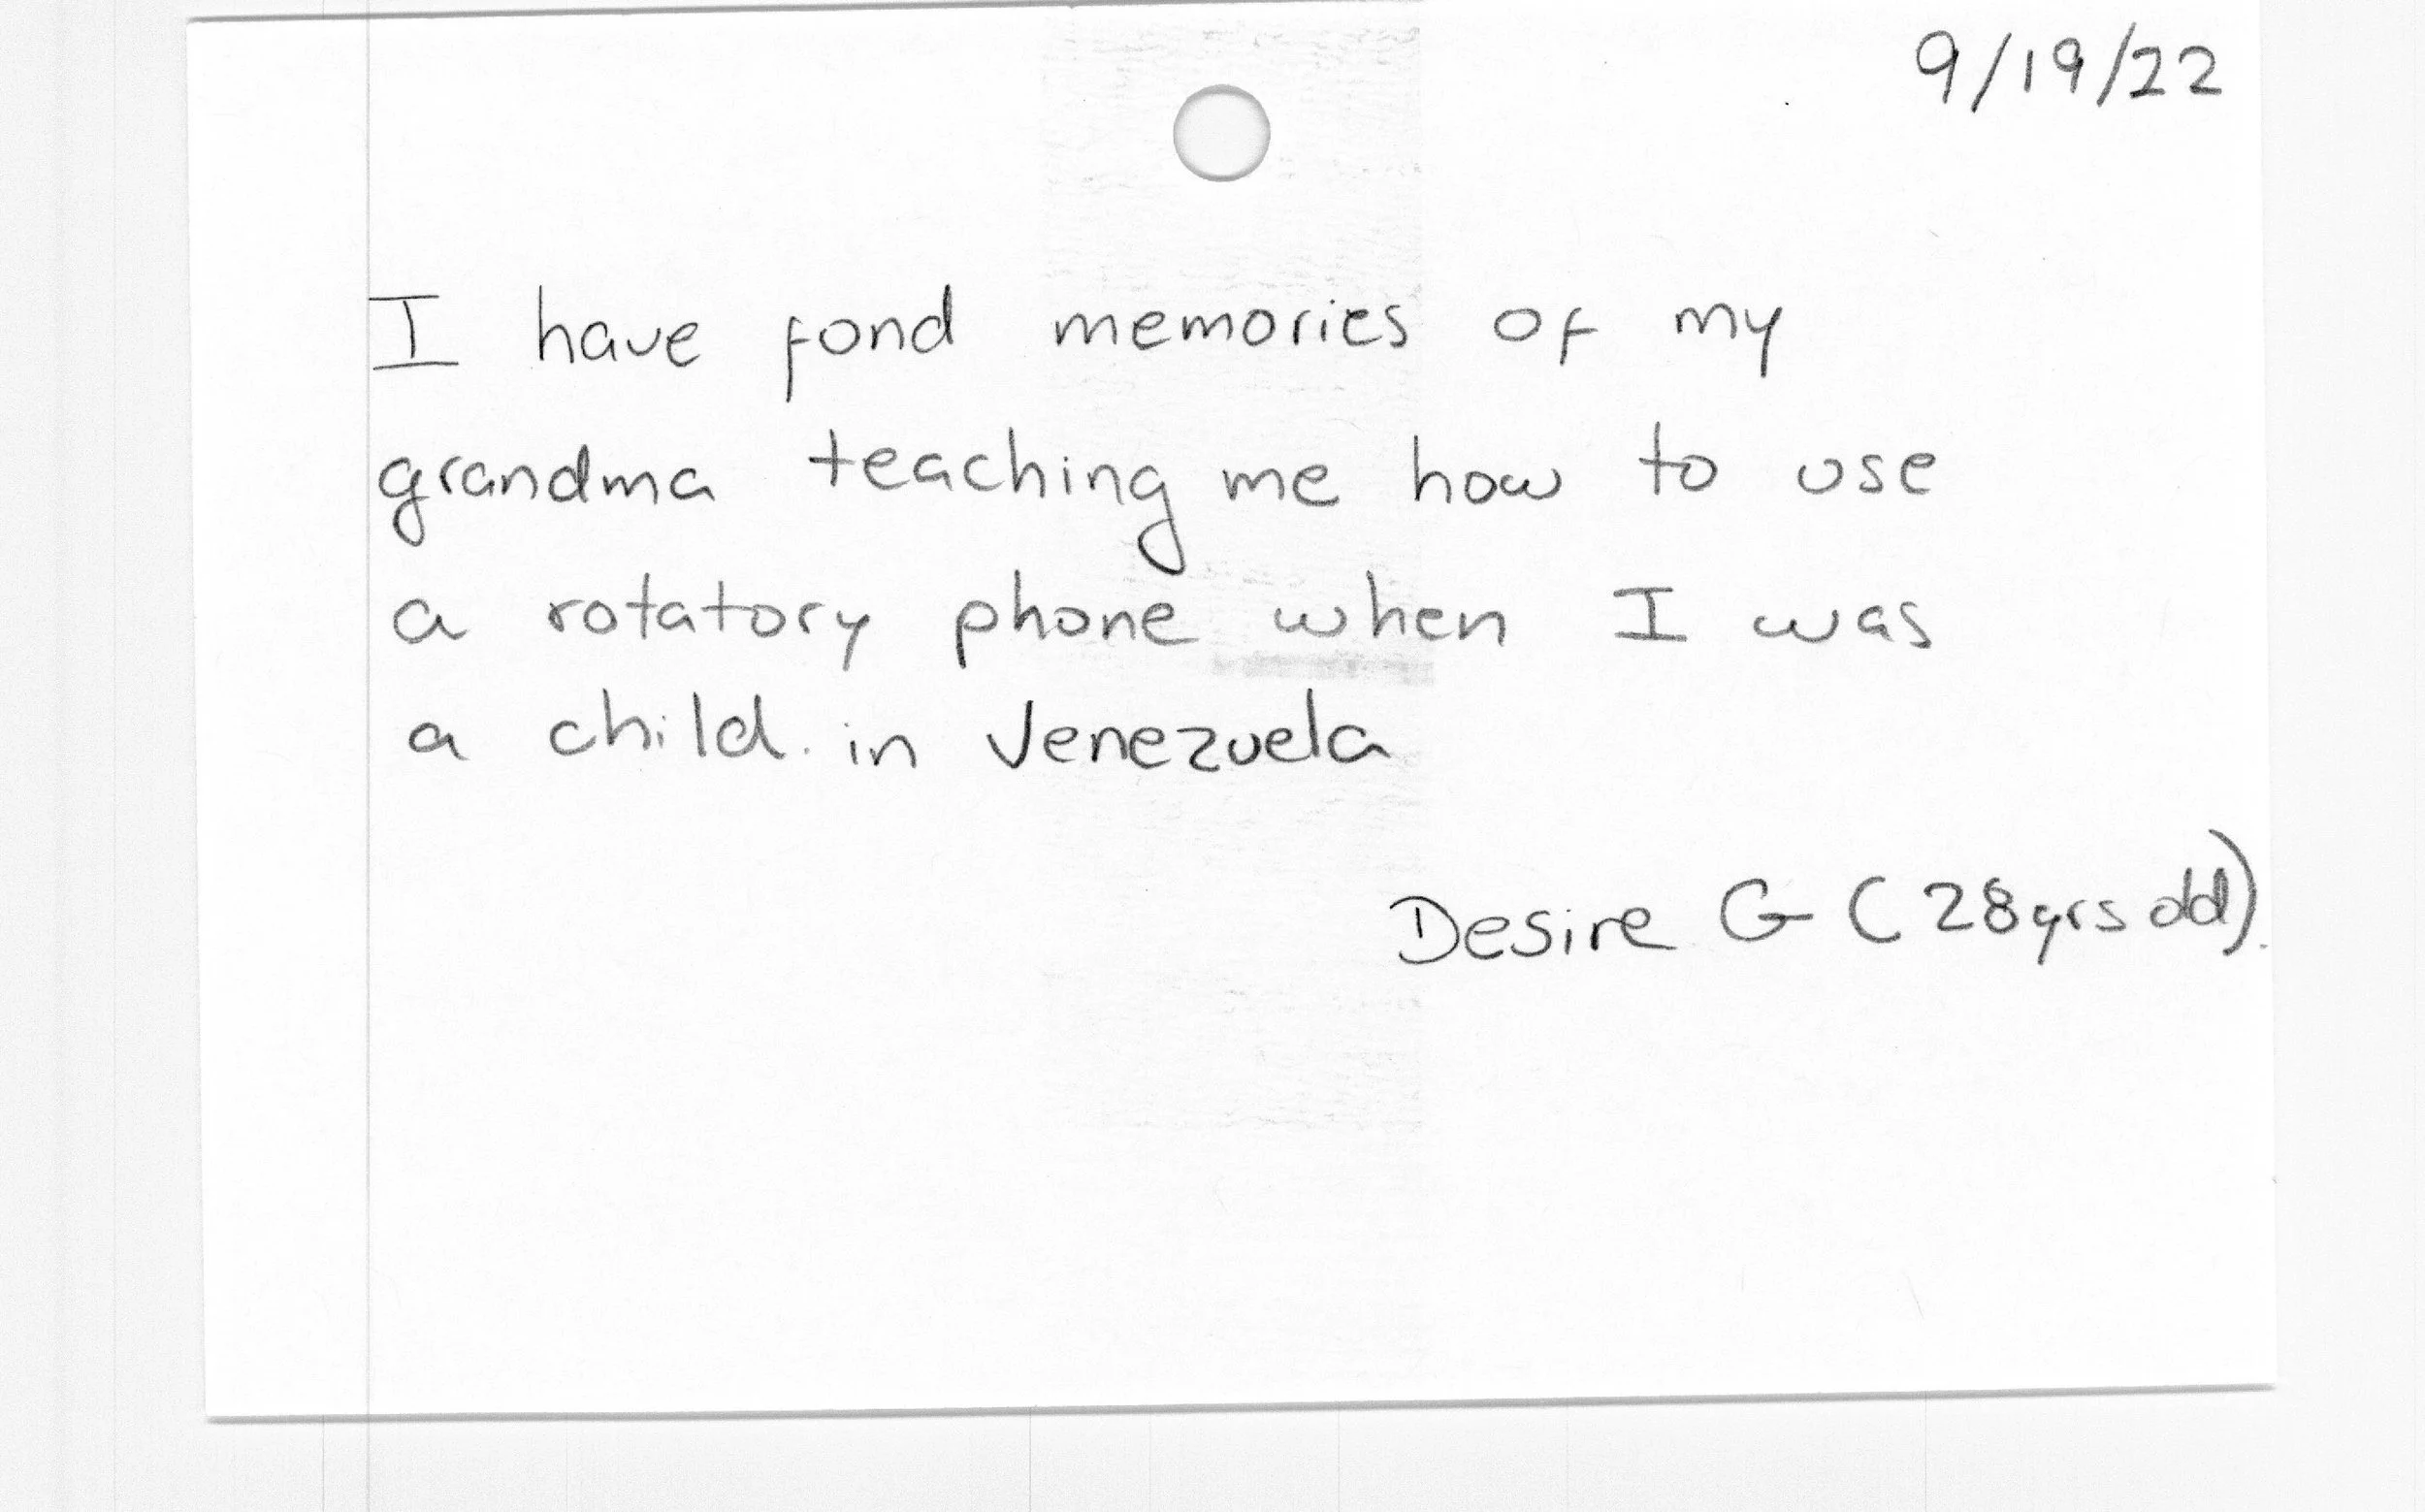 9/19/22
I have fond memories of my
grandma teaching me how to use
a rotatory phone when I was
a child. in Venezuela
Desire G (28yrs old).